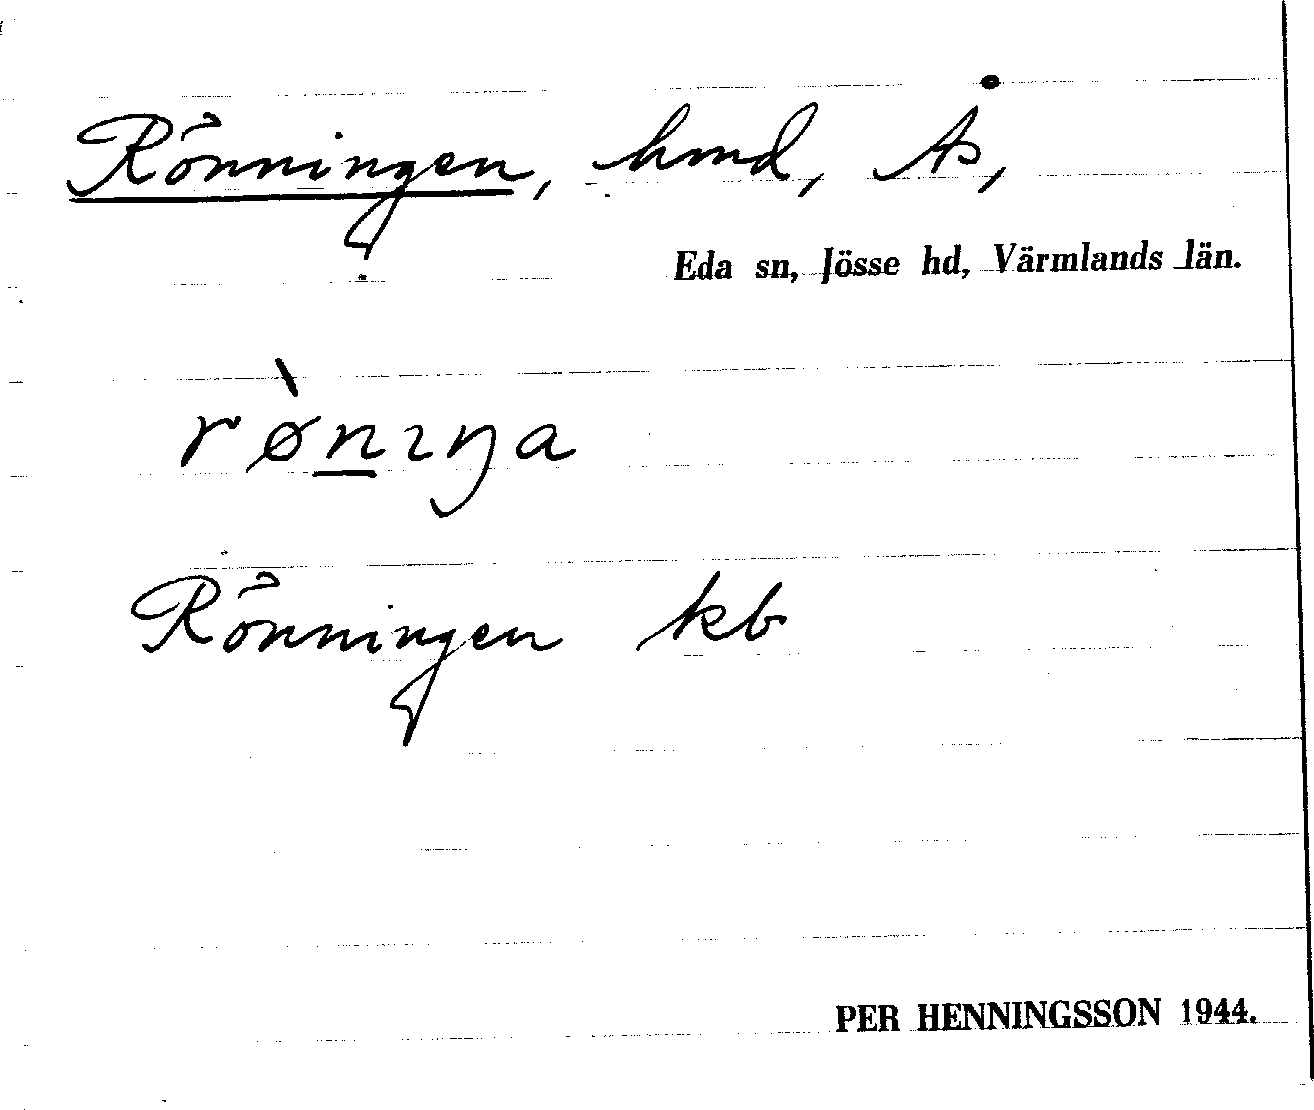 Rönningen, hmd, Ås,
Eda sn, Jösse hd, Värmlands län.
rø̀n̲ıŋa
Rönningen kb
PER HENNINGSSON 1944.